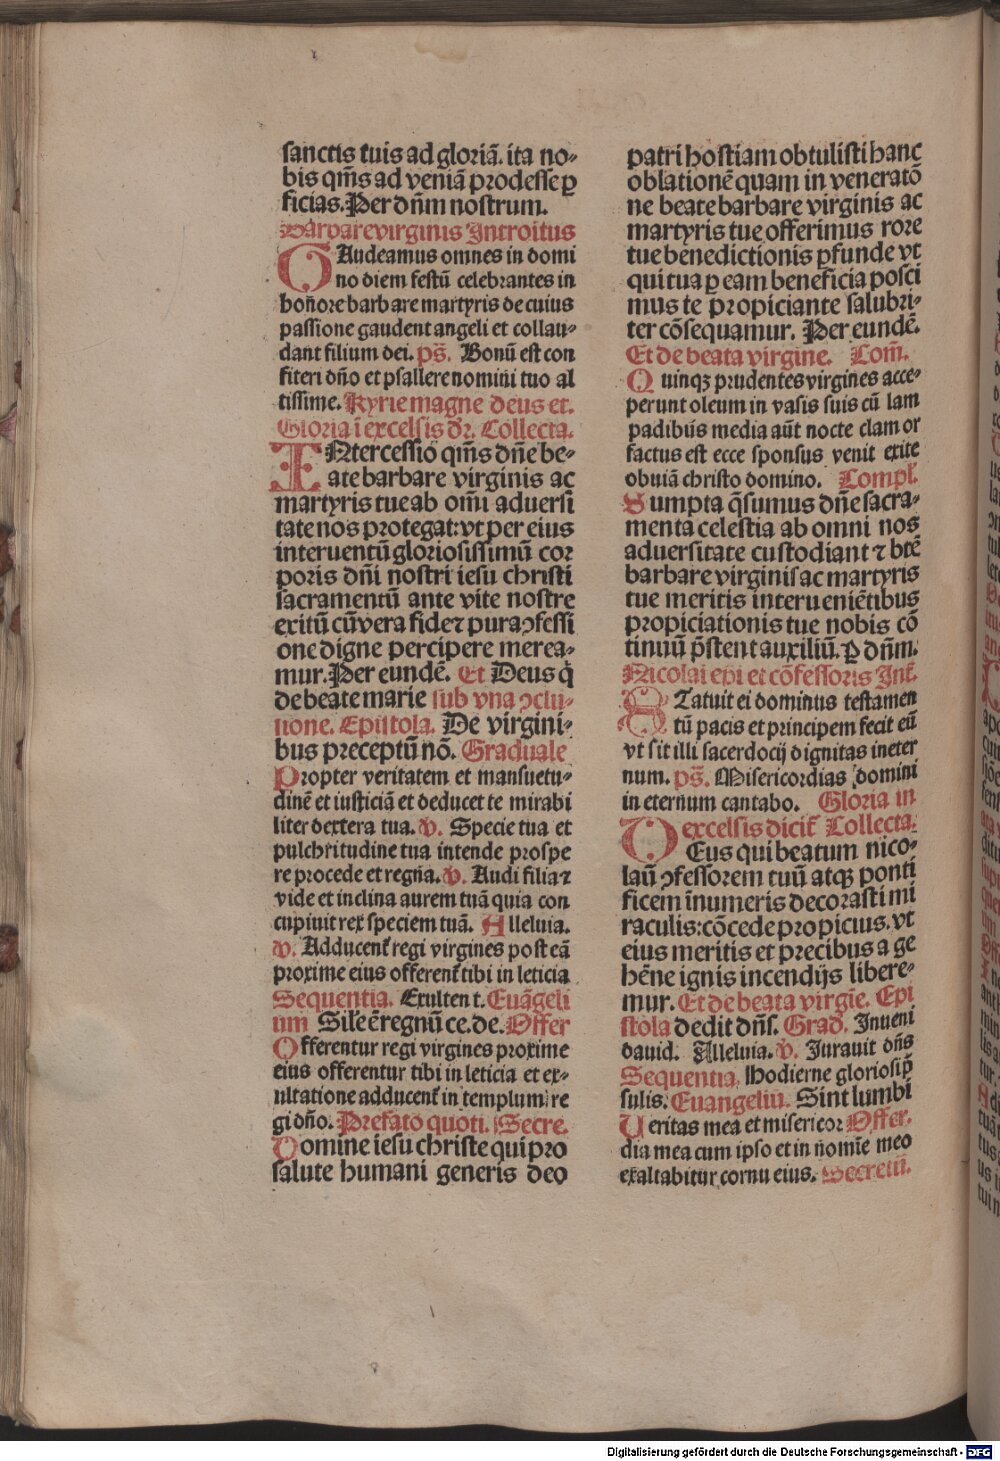 sanctis tuis ad gloriã. ita no⸗
bis qm̃s ad veniã prodesse ꝑ
ficias. Per dñm nostrum.
Barbare virginis Introitus
GAudeamus omnes in domi
no diem festũ celebrantes in
hoñore barbare martyris de cuius
passione gaudent angeli et collau⸗
dant filium dei. ps̃. Bonũ est con
fiteri dño et psallere nomini tuo al
tissime. Kyrie magne deus et.
Gloria ĩ excelsis dr̃. Collecta.
INtercessio qm̃s dñe be⸗
ate barbare virginis ac
martyris tue ab om̃i aduersi
tate nos protegat: vt per eius
interuentũ gloriosissimũ cor
poris dñi nostri iesu christi
sacramentũ ante vite nostre
exitũ cũ vera fide ⁊ pura ꝯfessi
one digne percipere merea⸗
mur. Per eundẽ. Et Deus q̃
de beate marie sub vna ꝯclu⸗
sione. Epistola. De virgini⸗
bus preceptũ nõ. Graduale
Propter veritatem et mansuetu⸗
dinẽ et iusticiã et deducet te mirabi
liter dextera tua. v̄. Specie tua et
pulchritudine tua intende prospe
re procede et regña. v̄. Audi filia ⁊
vide et inclina aurem tuã quia con
cupiuit rex speciem tuã. Alleluia.
v̄. Adducent̃ regi virgines post eã
proxime eius offerent̃ tibi in leticia
Sequentia. Exultent. Euãgeli
um Sil̃e ẽ regnũ ce. de. Offer
Offerentur regi virgines proxime
eius offerentur tibi in leticia et ex⸗
ultatione adducent̃ in templum re
gi dño. Prefatõ quoti. Secre.
Domine iesu christe qui pro
salute humani generis deo
patri hostiam obtulisti hanc
oblationẽ quam in veneratõ
ne beate barbare virginis ac
martyris tue offerimus rore
tue benedictionis ꝑfunde vt
qui tua ꝑ eam beneficia posci
mus te propiciante salubri⸗
ter cõsequamur. Per eundẽ.
Et de beata virgine. Com̃.
Quinqꝫ prudentes virgines acce⸗
perunt oleum in vasis suis cũ lam
padibus media aũt nocte clamor
factus est ecce sponsus venit exite
obuiã christo domino. Compl̃.
Sumpta q̃sumus dñe sacra⸗
menta celestia ab omni nos
aduersitate custodiant ⁊ btẽ
barbare virginis ac martyris
tue meritis interueniẽtibus
propiciationis tue nobis cõ
tinuũ p̃stent auxiliũ. P dñm.
Nicolai epi et cõfessoris Int̃.
STatuit ei dominus testamen
tũ pacis et principem fecit eũ
vt sit illi sacerdocij dignitas in eter
num. ps̃. Misericordias domini
in eternum cantabo. Gloria in
excelsis dicit̃ Collecta.
DEus qui beatum nico⸗
laũ ꝯfessorem tuũ atqꝫ ponti
ficem ĩnumeris decorasti mi
raculis: cõcede propicius. vt
eius meritis et precibus a ge
hẽne ignis incendijs libere⸗
mur. Et de beata virgĩe. Epi
stola dedit dñs. Grad̃. Inueni
dauid. Alleluia. v̄. Iurauit dñs
Sequentia. Hodierne gloriosi p̃
sulis. Euangeliũ. Sint lumbi
Ueritas mea et misericor Offer.
dia mea cum ipso et in nomĩe meo
exaltabitur cornu eius. Secretũ.
Digitalisierung gefördert durch die Deutsche Forschungsgemeinschaft - DFG